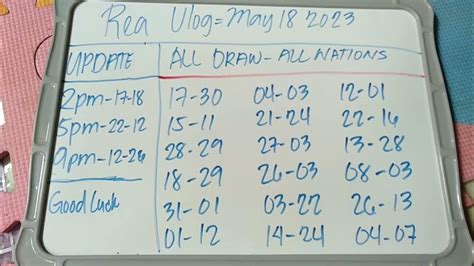 Rea Vlog=May 18 2023
UPDATE
2pm-17-18
5pm-22-12
9pm-12-26
Good Luck
ALL DRAW-ALL NATIONS
17-30 04-03 12-01
15-11 21-24 22-16
28-29 27-03 13-28
18-29 26-03 08-03
31-01 03-22 26-13
01-12 14-24 04-07